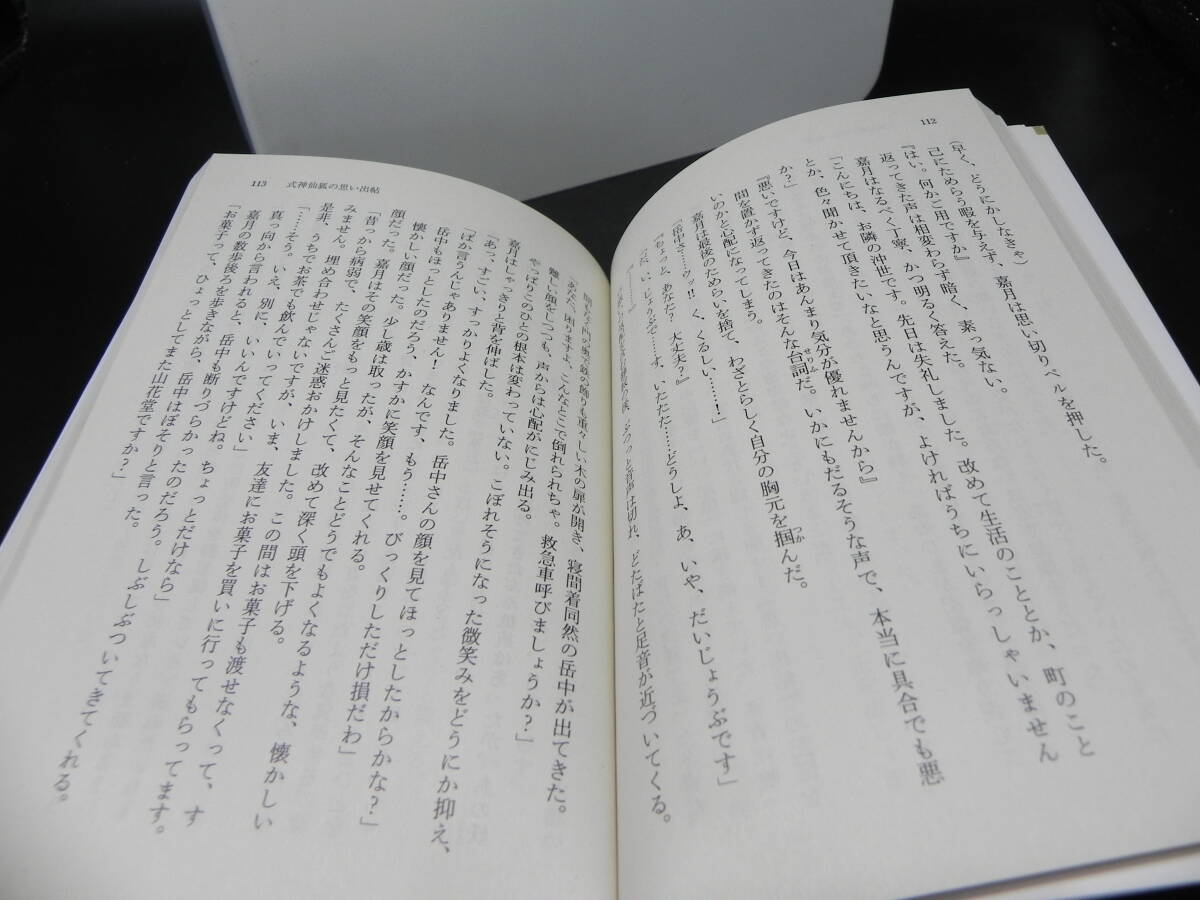 112
(早く、どうにかしなきゃ)
己にためらう暇を与えず、嘉月は思い切りベルを押した。
『はい。何かご用ですか』
返ってきた声は相変わらず暗く、素っ気ない。
嘉月はなるべく丁寧、かつ明るく答えた。
「こんにちは、お隣の沖世です。先日は失礼しました。改めて生活のこととか、町のこと
とか、色々聞かせて頂きたいなと思うんですが、よければうちにいらっしゃいません
か?」
『悪いですけど、今日はあんまり気分が優れませんから』
間を置かず返ってきたのはそんな台詞だ。いかにもだるそうな声で、本当に具合でも悪
いのかと心配になってしまう。
嘉月は最後のためらいを捨て、わざとらしく自分の胸元を掴んだ。
「岳中さ……ウッ!! く、くるしい……!」
『ちょっと、あなた? 大丈夫?』
「はい、じょうぶで……す、いたたた……どうしよ、あ、いや、だいじょうぶです」
ぶつっと音声は切れ、どたばたと足音が近づいてくる。
113 式神仙狐の思い出帖
重々しい木の扉が開き、寝間着同然の岳中が出てきた。
「あなた、困りますよ、こんなとこで倒れられちゃ。救急車呼びましょうか?」
難しい顔をしつつも、声からは心配がにじみ出る。
やっぱりこのひとの根本は変わっていない。こぼれそうになった微笑みをどうにか抑え、
嘉月はしゃっきりと背を伸ばした。
「あっ、すごい、すっかりよくなりました。岳中さんの顔を見てほっとしたからかな?」
「ばか言うんじゃありません! なんです、もう……。びっくりしただけ損だわ」
岳中もほっとしたのだろう、かすかに笑顔を見せてくれる。
懐かしい顔だった。少し歳は取ったが、そんなことどうでもよくなるような、懐かしい
顔だった。嘉月はその笑顔をもっと見たくて、改めて深く頭を下げる。
「昔っから病弱で、たくさんご迷惑おかけしました。この間はお菓子も渡せなくって、す
みません。埋め合わせじゃないですが、いま、友達にお菓子を買いに行ってもらってます。
是非、うちでお茶でも飲んでいってください」
「……そう。いえ、別に、いいんですけどね。ちょっとだけなら」
真っ向から言われると、岳中も断りづらかったのだろう。しぶしぶついてきてくれる。
嘉月の数歩後ろを歩きながら、岳中はぼそりと言った。
「お菓子って、ひょっとしてまた山花堂ですか?」